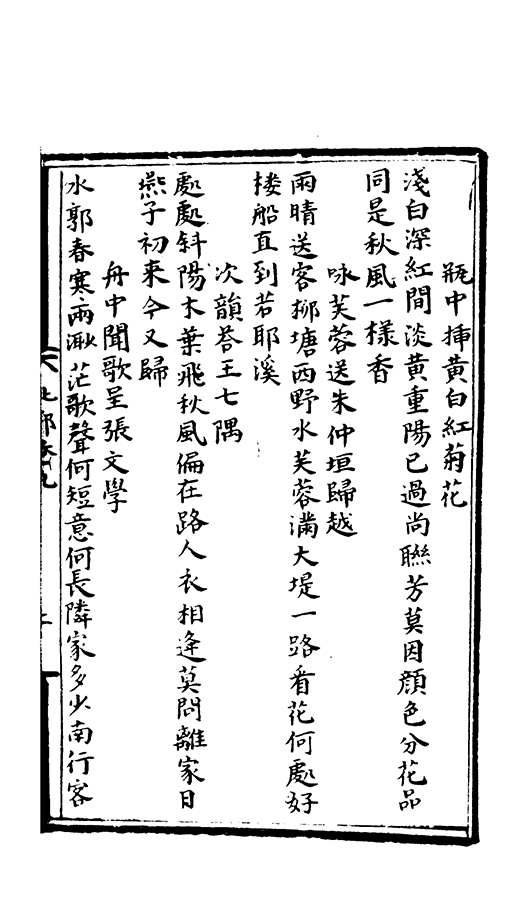 瓶中挿黄白紅菊花
淺白深紅間淡黄重陽已過尚聮芳莫因顔色分花品
同是秋風一樣香
咏芙蓉送朱仲垣歸越
雨晴送客柳塘西野水芙蓉滿大堤一路看花何處好
楼船直到若耶溪
次韻荅王七隅
處處斜陽木葉飛秋風偏在路人衣相逢莫問離家日
燕子初来今又歸
舟中聞歌呈張文學
水郭春寒雨漵茫歌聲何短意何長隣家多少南行客